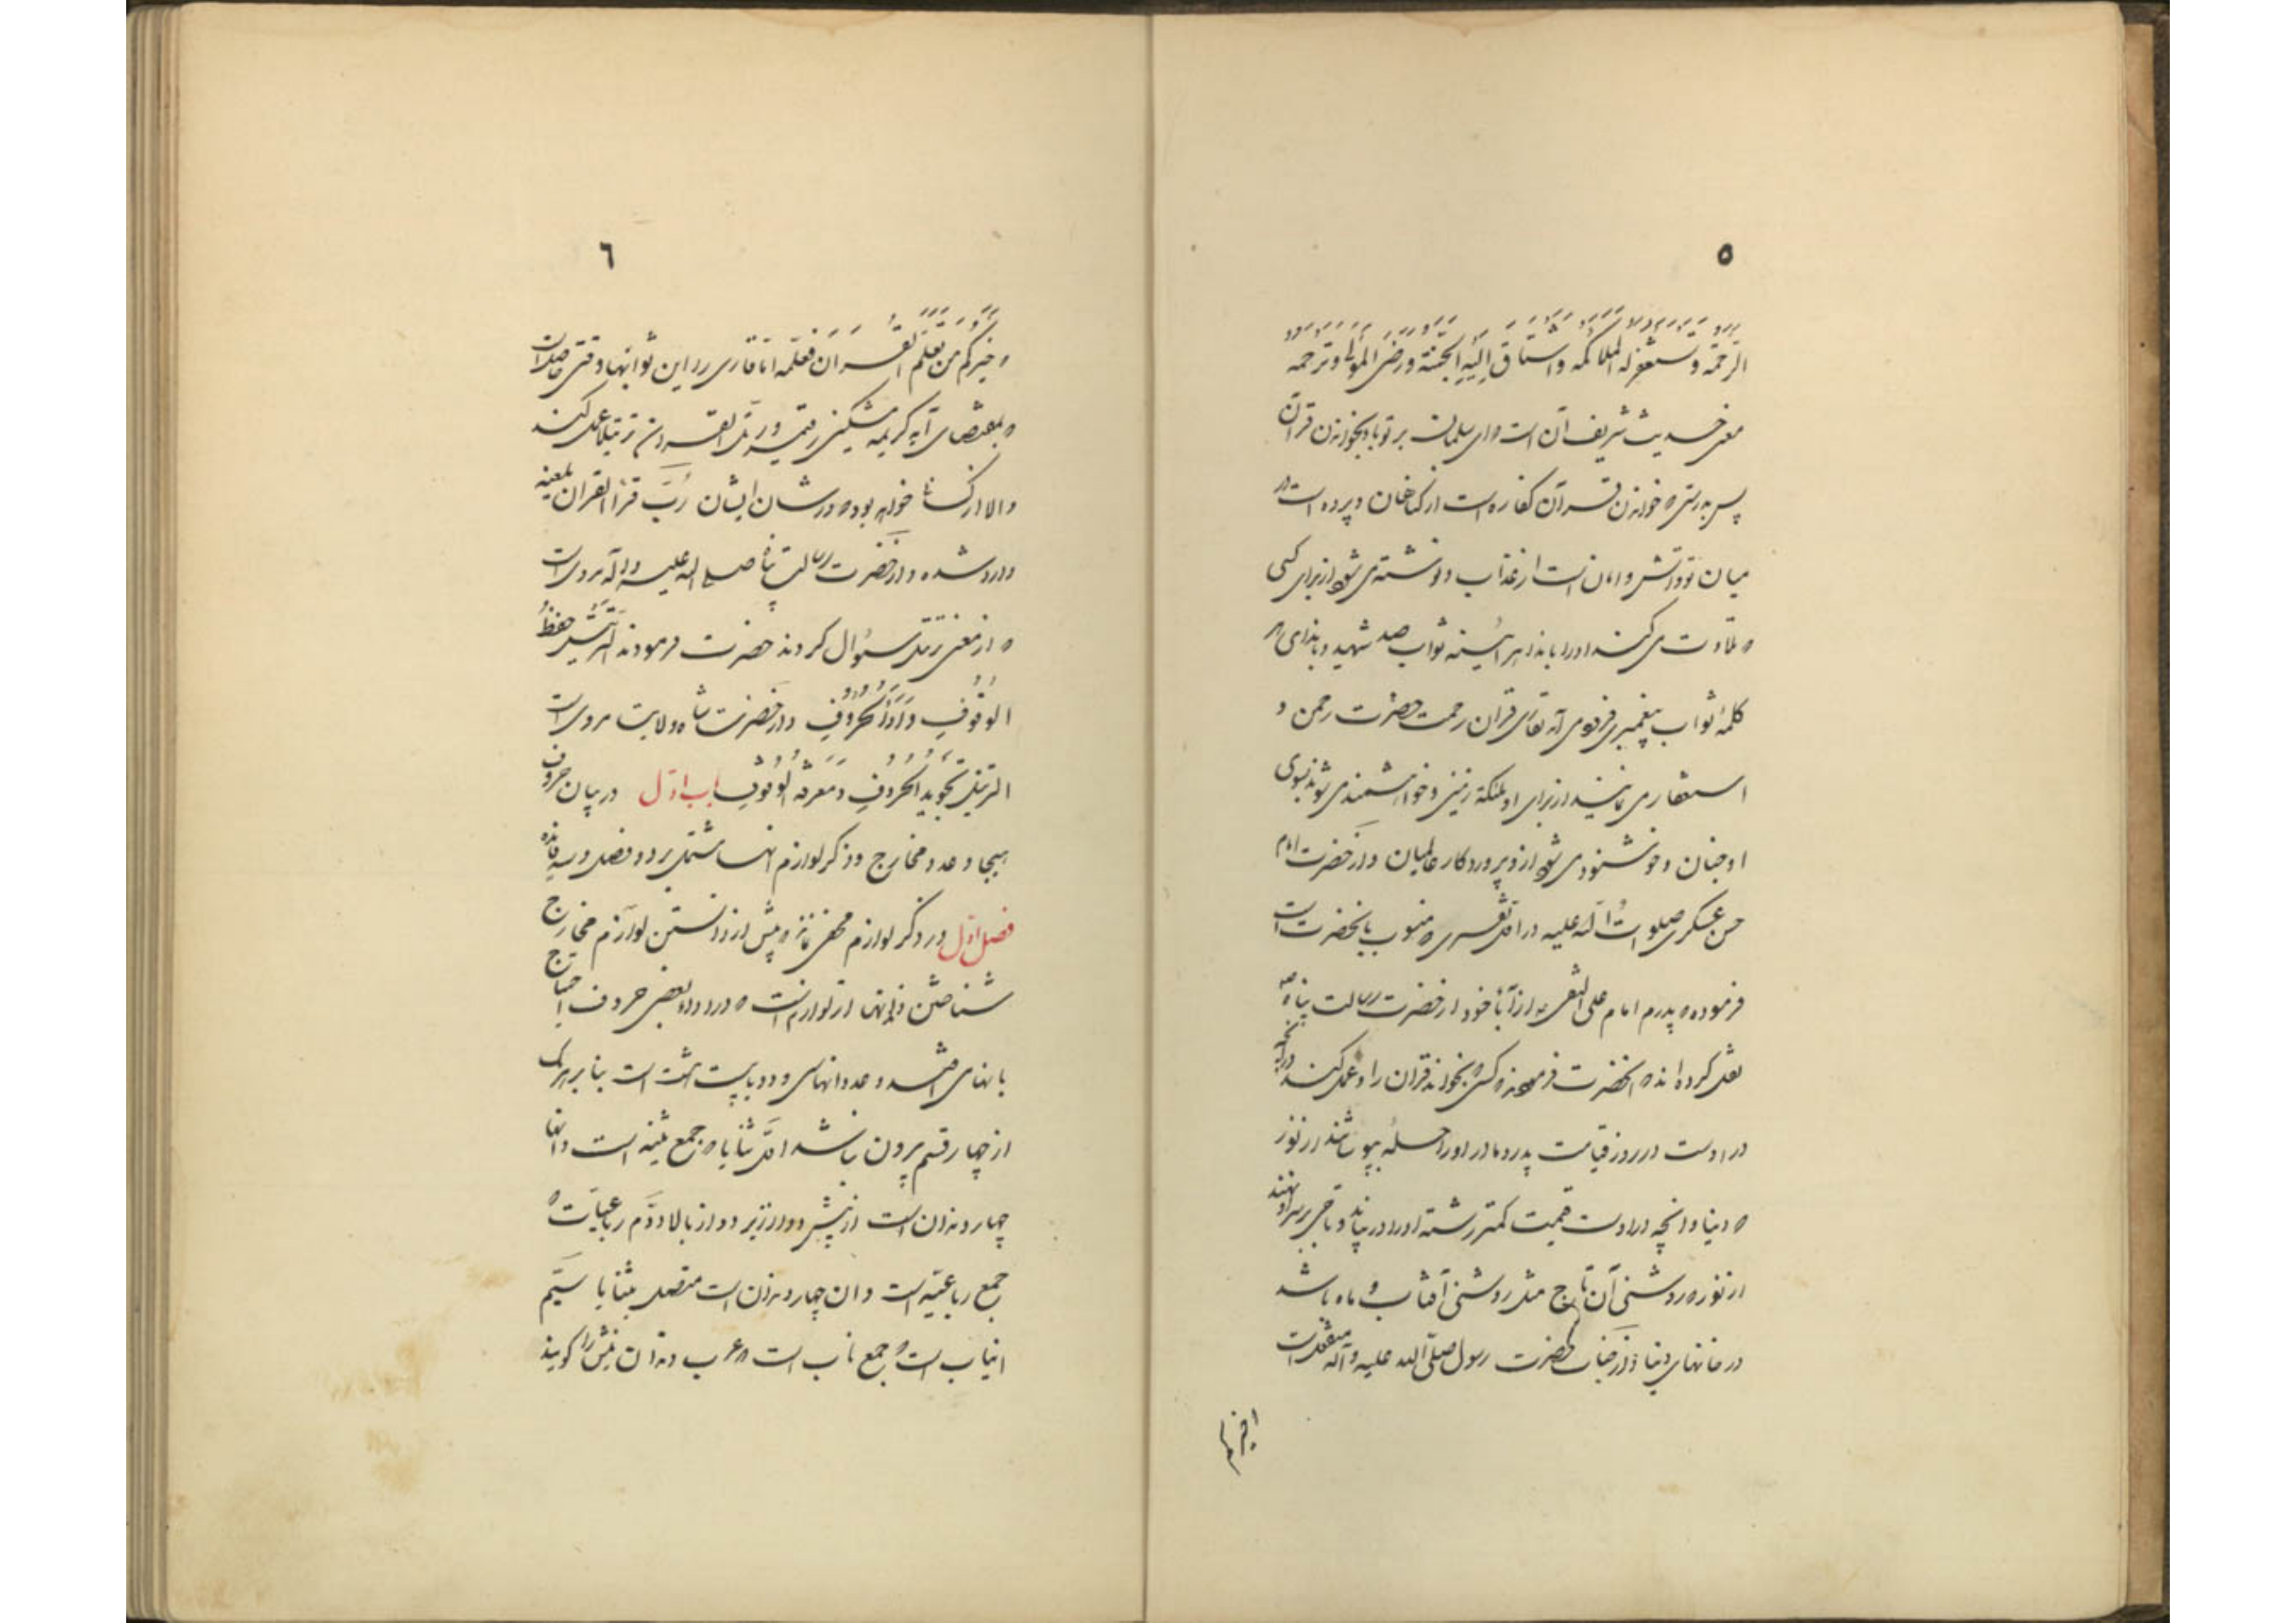 ۵
الرحمة و تستغفر له الملائکه و اشتاق الیه الجنة و رضی المولی و ترجمه
معنی حدیث شریف آن است که ای سلمان بر تو باد بخواندن قرآن
پس بدرستی که خواندن قرآن کفاره است از گناهان و پرده است در
میان تو و آتش و امان است از عذاب و نوشته می شود از برای کسی
که تلاوت می کند او را باندهر آینه ثواب صد شهید و باندای هر
کلمه ثواب پیغمبری فرود می آید بقاری قرآن رحمت حضرت رحمن و
استغفار می نمایند از برای او ملئکه زمین و خواهشمند می شوند بسوی
او جنان و خوشنود می شود از او پروردگار عالمیان و از حضرت امام
حسن عسکری صلوات الله علیه در اول تفسیری که منسوب بانحضرت است
فرموده که پدرم امام علی النقی از آباء خود از حضرت رسالت پناه ص
نقل کرده اند که آنحضرت فرمودند که کسی که بخواند قرآن را و عمل کند بآنچه
در اوست در روز قیامت پدر و مادر او را حله بپوشانند از نور
که دنیا و آنچه در اوست قیمت کمتر رشته او را در نیابد و تاجی بر سر او نهند
از نور که روشنی آن تاج مثل روشنی آفتاب و ماه باشد
در خانهای دنیا و از جناب حضرت رسول صلی الله علیه و آله منقول است
۶
خیرکم من تعلم القرآن فعلمه اما قاری را این ثوابها وقتی حاصل است
که بمقتضای آیه کریمه و رتل القرآن ترتیلا عمل کند
و الا از کسانی خواهد بود که در شان ایشان رب قرأ القرآن یلعنه
وارد شده و از حضرت رسالت پناه صلی الله علیه و اله مرویست
که از معنی ترتیل سئوال کردند حضرت فرمودند الترتیل حفظ
الوقوف و اداء الحروف و از حضرت شاه ولایت مرویست
الترتیل تجوید الحروف و معرفة الوقوف باب اول در بیان حروف
هیجا و عدد مخارج و ذکر لوازم آنها مشتمل بر دو فصل و سه فائده
فصل اول در ذکر لوازم مخفی نماند که پیش از دانستن لوازم مخارج
شناختن دندانها از لوازمست که در ادای بعضی حروف احتیاج
بانها می افتد و عدد آنها سی و دو یا بیست هشت است بنابر این هر یک
از چهار قسم بیرون نباشد اول ثنایا که جمع ثنیه است و آنها
چهار دندان است از پیش دو از زیر دو از بالا دوم رباعیات که
جمع رباعیه است و ان چهار دندان است متصل بثنایا سیم
انیاب است که جمع ناب است که عرب دندان نیش را گویند